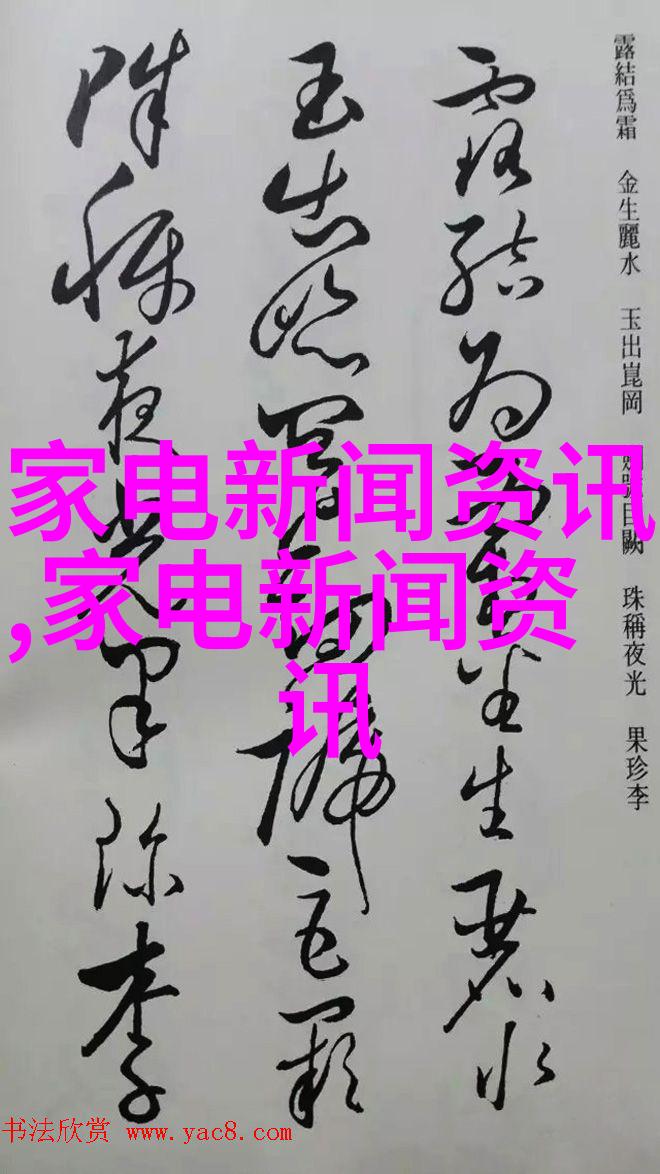 露結爲霜 金生麗水 玉出崑岡 號巨闕 珠稱夜光 果珍李
露結為霜金生麗水
玉出崑岡劍號巨闕
珠稱夜光果珍李
家电新闻资讯
,家电新闻资
讯
书法欣赏 www.yac8.com